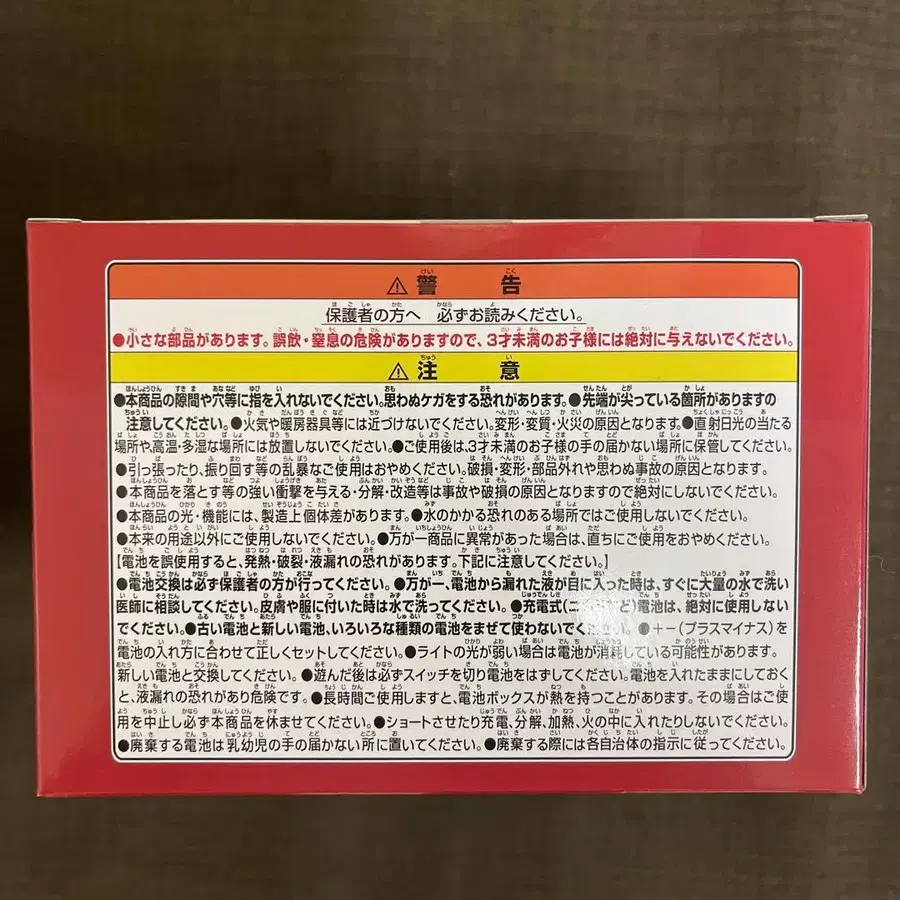 ⚠警告
保護者の方へ 必ずお読みください。
●小さな部品があります。誤飲・窒息の危険がありますので、3才未満のお子様には絶対に与えないでください。
⚠注意
●本商品の隙間や穴等に指を入れないでください。思わぬケガをする恐れがあります。●先端が尖っている箇所がありますの
注意してください。●火気や暖房器具等には近づけないでください。変形・変質・火災の原因となります。●直射日光の当たる
場所や、高温・多湿な場所には放置しないでください。●ご使用後は、3才未満のお子様の手の届かない場所に保管してください。
●引っ張ったり、振り回す等の乱暴なご使用はおやめください。破損・変形・部品外れや思わぬ事故の原因となります。
●本商品を落とす等の強い衝撃を与える・分解・改造等は事故や破損の原因となりますので絶対にしないでください。
●本商品の光・機能には、製造上個体差があります。●水のかかる恐れのある場所ではご使用しないでください。
●本来の用途以外にご使用しないでください。●万が一商品に異常があった場合は、直ちにご使用をおやめください。
【電池を誤使用すると、発熱・破裂・液漏れの恐れがあります。下記に注意してください。】
●電池交換は必ず保護者の方が行ってください。●万が一、電池から漏れた液が目に入った時は、すぐに大量の水で洗い
医師に相談してください。皮膚や服に付いた時は水で洗ってください。●充電式(ニ ど)電池は、絶対に使用しない
でください。●古い電池と新しい電池、いろいろな種類の電池をまぜて使わないでください。●+-(プラスマイナス)を
電池の入れ方に合わせて正しくセットしてください。●ライトの光が弱い場合は電池が消耗している可能性があります。
新しい電池と交換してください。●遊んだ後は必ずスイッチを切り電池をはずしてください。電池を入れたままにしておく
と、液漏れの恐れがあり危険です。●長時間ご使用しますと、電池ボックスが熱を持つことがあります。その場合はご使
用を中止し必ず本商品を休ませてください。●ショートさせたり充電、分解、加熱、火の中に入れたりしないでください。
●廃棄する電池は乳幼児の手の届かない所に置いてください。●廃棄する際には各自治体の指示に従ってください。